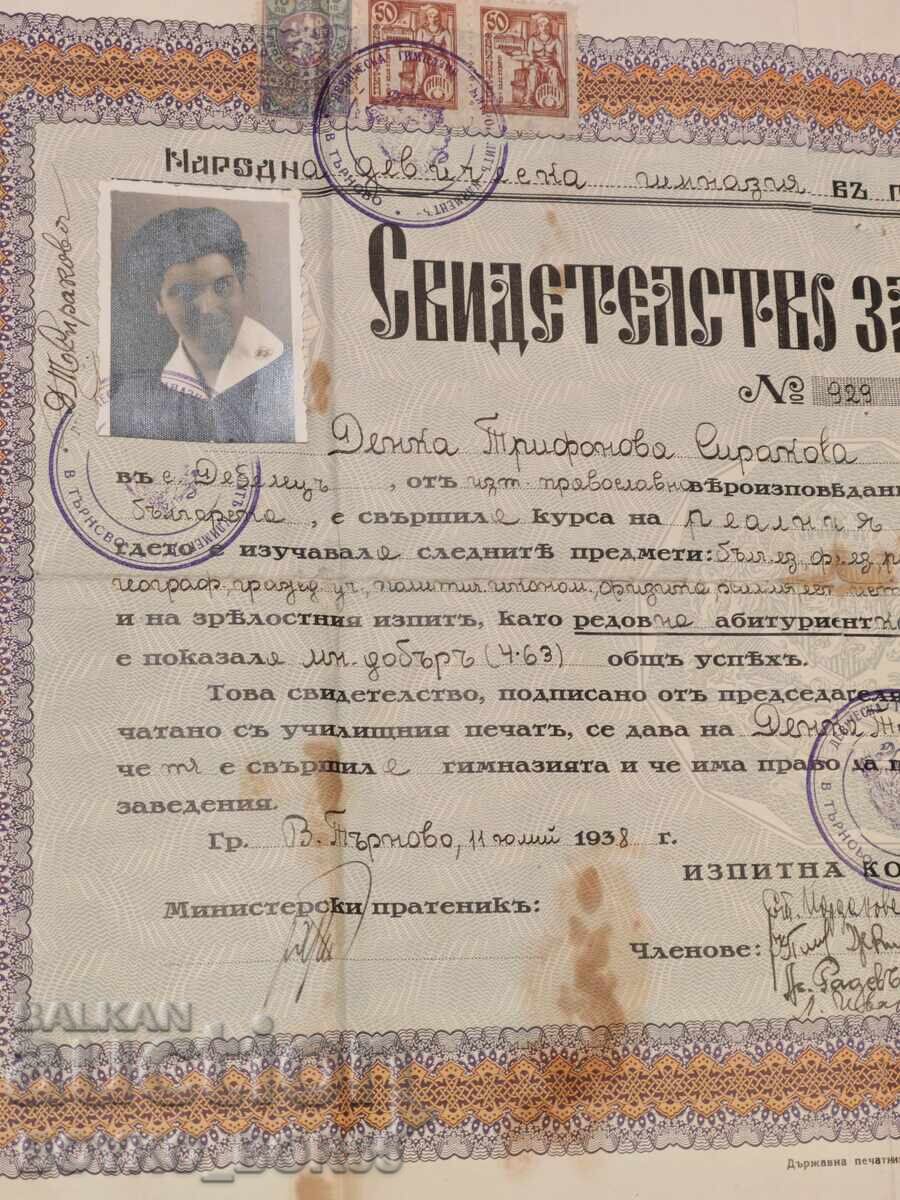 50 50
Народна девическа гимназия въ г
Свидетелство за
№ 929
Денка Трифонова Сиракова
въ с. Дебелецъ, отъ изт. православно вѣроизповѣдани
българска, е свършила курса на реалния
гдето е изучавала следнитѣ предмети: бълг. ез., фр. ез, р
географ., гражд. уч., политич. иконом., физика
и на зрѣлостния изпитъ, като редовна абитуриентка
е показала мн. добъръ (4·63) общъ успѣхъ.
Това свидетелство, подписано отъ председателя
чатано съ училищния печатъ, се дава на Денка
че тя е свършила гимназията и че има право да п
заведения.
Гр. В. Търново, 11 юлий 1938 г.
ИЗПИТНА КО
Министерски пратеникъ:
Членове:
Радевъ
В ТЪРНОВО
В ТЪРНОВО
В ТЪРНОВО
BALKAN
auction
Държавна печатн